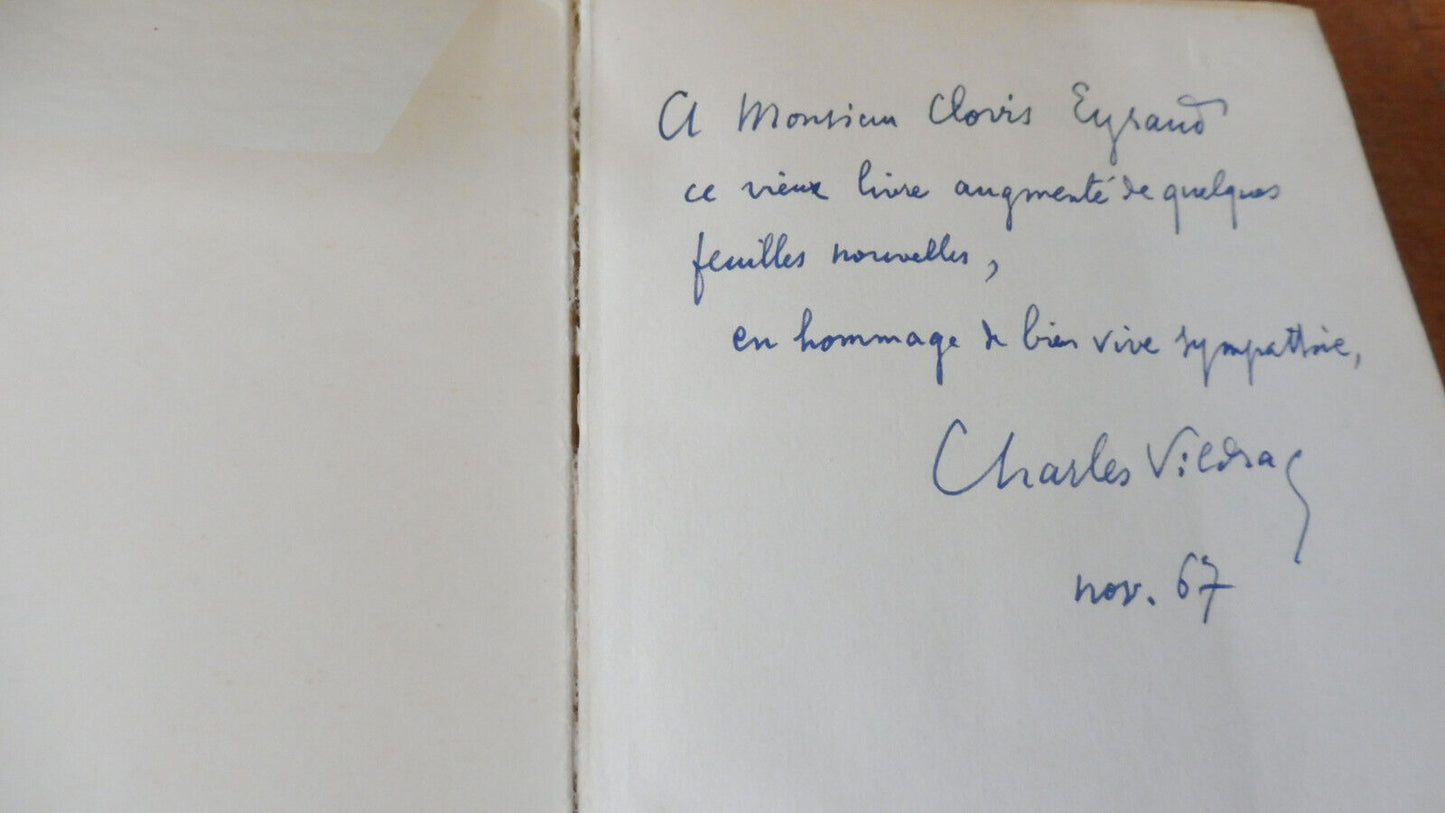 A Monsieur Clovis Eyraud
ce vieux livre augmenté de quelques
feuilles nouvelles,
en hommage de bien vive sympathie,
Charles Vildrac
nov. 67